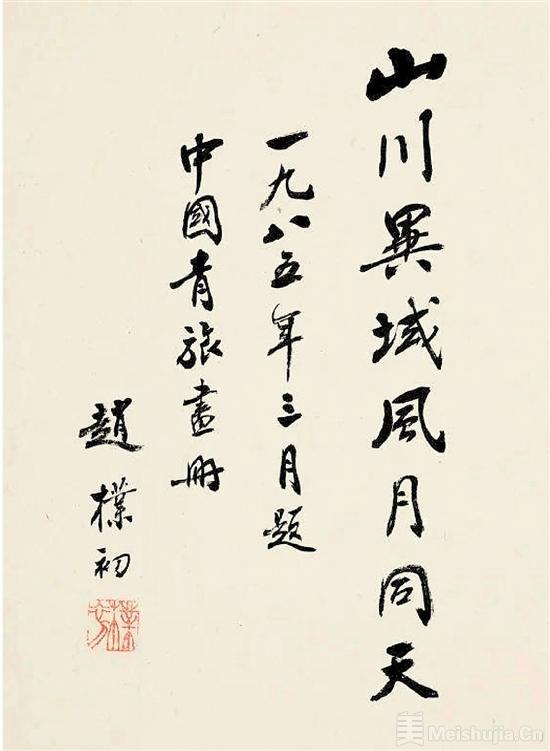 山川異域風月同天
一九八五年三月題
中國青旅畫册
趙樸初
美 Meishujia.Cn